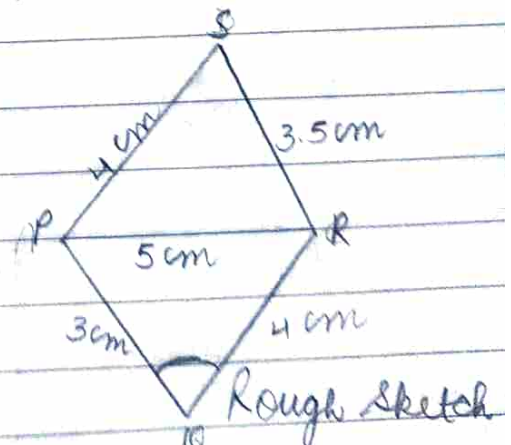 S
4 cm
3.5cm
P
R
5cm
3cm
4 cm
Q
Rough Sketch